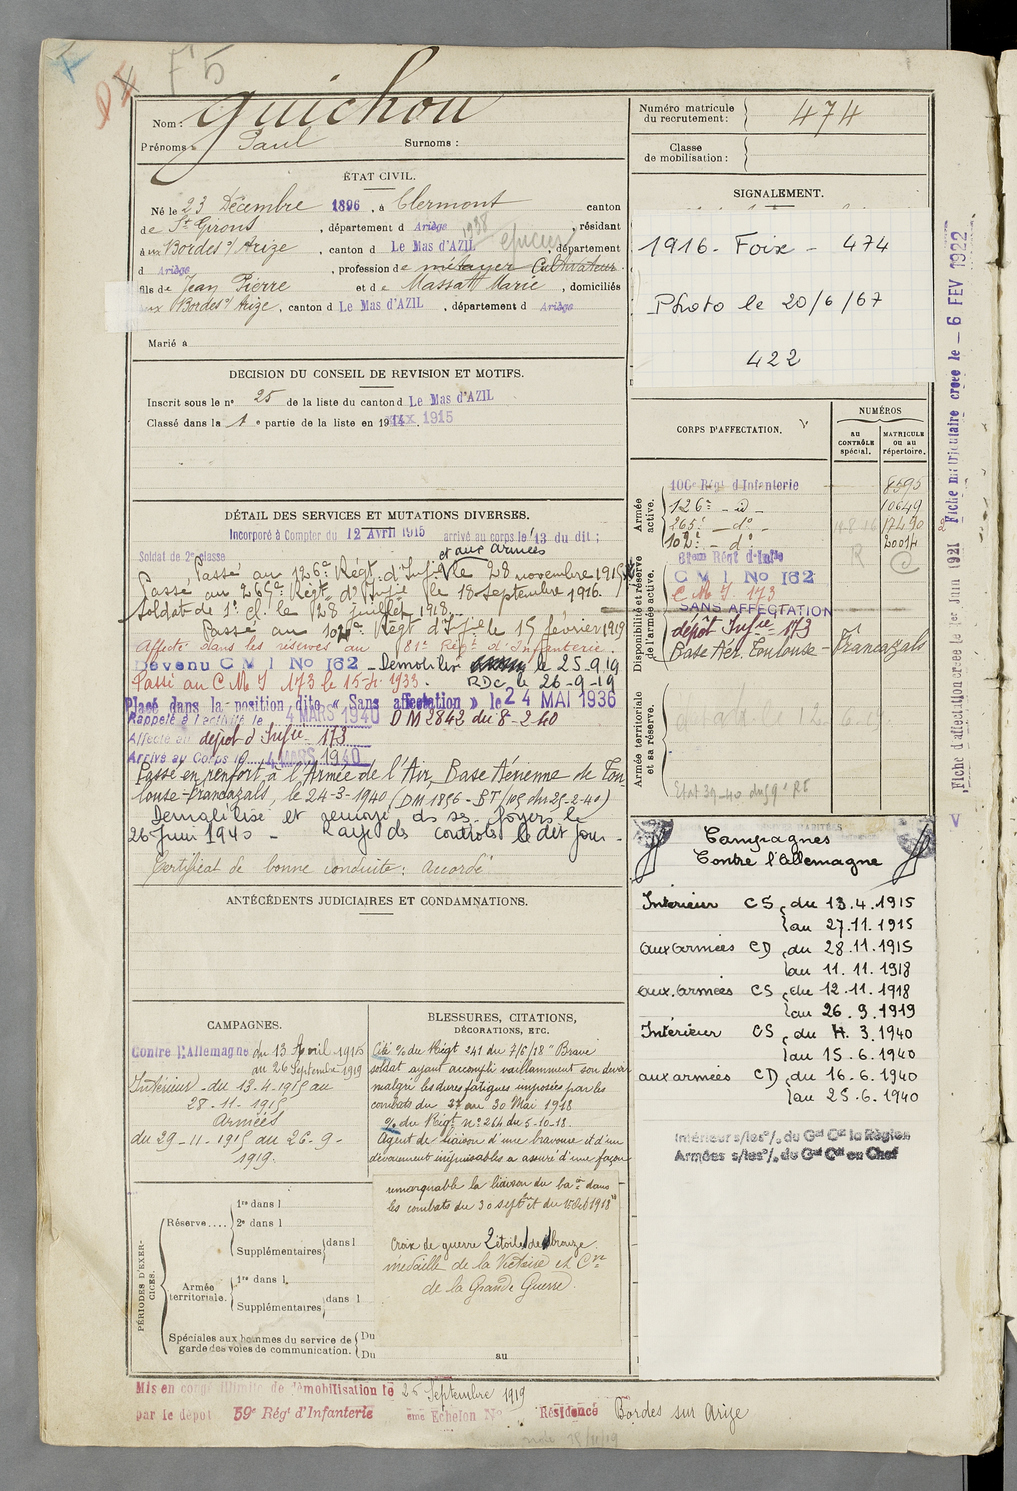 F 5
Nom : Guichou
Prénoms : Paul Surnoms :
Numéro matricule du recrutement : 474
Classe de mobilisation :
ÉTAT CIVIL.
Né le 23 Décembre 1896, à Clermont canton
de St Girons, département d Ariège, résidant
à aux Bordes s/ Arize, canton d Le Mas d'AZIL, département
d Ariège, profession de métayer Cultivateur.
fils de Jean Pierre et de Massat Marie, domiciliés
aux Bordes s/ Arize, canton d Le Mas d'AZIL, département d Ariège
Marié à
SIGNALEMENT.
1916 - Foix - 474
Photo le 20/6/67
422
DECISION DU CONSEIL DE REVISION ET MOTIFS.
Inscrit sous le n° 25 de la liste du canton d Le Mas d'AZIL
Classé dans la 1e partie de la liste en 1915
DÉTAIL DES SERVICES ET MUTATIONS DIVERSES.
Incorporé à Compter du 12 Avril 1915 arrivé au corps le 13 du dit ;
Soldat de 2e classe et aux armées
Passé au 126e Régt. d'Infie le 28 novembre 1915
Passé au 265e Régt d'Infie le 18 septembre 1916.
Soldat de 1e cl. le 28 juillet 1918.
Passé au 102e Régt d'Ie le 15 février 1919
Affecté dans les réserves au 81e Régt d'Infanterie.
Devenu C M I No 162 - Démobilisé le 25.9.19
Passé au C M I 173 le 15 1933. RDC le 26-9-19
Placé dans la position dite « Sans affectation » le 24 MAI 1936
Rappelé à l'activité le 4 MARS 1940 DM 2842 du 8-2-40
Affecté au dépôt d'Infie 173
Arrivé au Corps le 4 MARS 1940
Passé en renfort à l'Armée de l'Air, Base Aérienne de Tou-
louse-Francazals, le 24-3-1940 (DM 1856 - BT/ du 25-2-40)
Démobilisé et renvoyé ds ses foyers le
26 juin 1940 - Rayé des contrôles le dit jour -
Certificat de bonne conduite : Accordé.
CORPS D'AFFECTATION.
NUMÉROS
AU CONTRÔLE spécial.
MATRICULE ou au répertoire.
Armée active.
100e Régt d'Infanterie 8595
126e - d° - 10649
265e - d° - 17490
102e - d° 20014
Disponibilité et réserve de l'armée active.
81eme Régt d'Infie
C M I No 162
C M I 173
SANS AFFECTATION
dépôt Infie 173
Base Aér. Toulouse - Francazals
Armée territoriale et sa réserve.
Etat 39-40
ANTÉCÉDENTS JUDICIAIRES ET CONDAMNATIONS.
CAMPAGNES.
Contre l'Allemagne du 13 Avril 1915
au 26 Septembre 1919
Intérieur du 13-4-1915 au
28-11-1915
Armées
du 29-11-1915 au 26-9-
1919.
BLESSURES, CITATIONS,
DÉCORATIONS, ETC.
Cité % du Régt 241 du 7/6/18 "Brave
soldat ayant accompli vaillamment son devoir
malgré les dures fatigues imposées par les
combats du 27 au 30 Mai 1918
% du Régt n° 264 du 5-10-18
Agent de liaison d'une bravoure et d'un
dévouement inépuisables a assuré d'une façon
remarquable la liaison du bon dans
les combats du 30 septbre et du 1 Oct 1918"
Croix de guerre 2 étoiles de bronze
médaille de la Victoire et Cve
de la Grande Guerre
Campagnes
Contre l'Allemagne
Intérieur CS du 13.4.1915
au 27.11.1915
aux armées CD du 28.11.1915
au 11.11.1918
aux armées CS du 12.11.1918
au 26.9.1919
Intérieur CS du 4.3.1940
au 15.6.1940
aux armées CD du 16.6.1940
au 25.6.1940
Intérieur s/les % du Gal Ct la Région
Armées s/les % du Gal Ct en Chef
PÉRIODES D'EXERCICES.
Réserve....
1re dans l
2e dans l
Supplémentaires dans l
Armée territoriale.
1re dans l
Supplémentaires dans l
Spéciales aux hommes du service de garde des voies de communication.
Du au
Du
Mis en congé illimité de démobilisation le 25 Septembre 1919
par le dépot 59e Régt d'Infanterie ème Echelon No Résidence Bordes sur Arize
Fiche d'affectation créée le 1er Juin 1921 Fiche matriculaire créée le - 6 FEV 1922